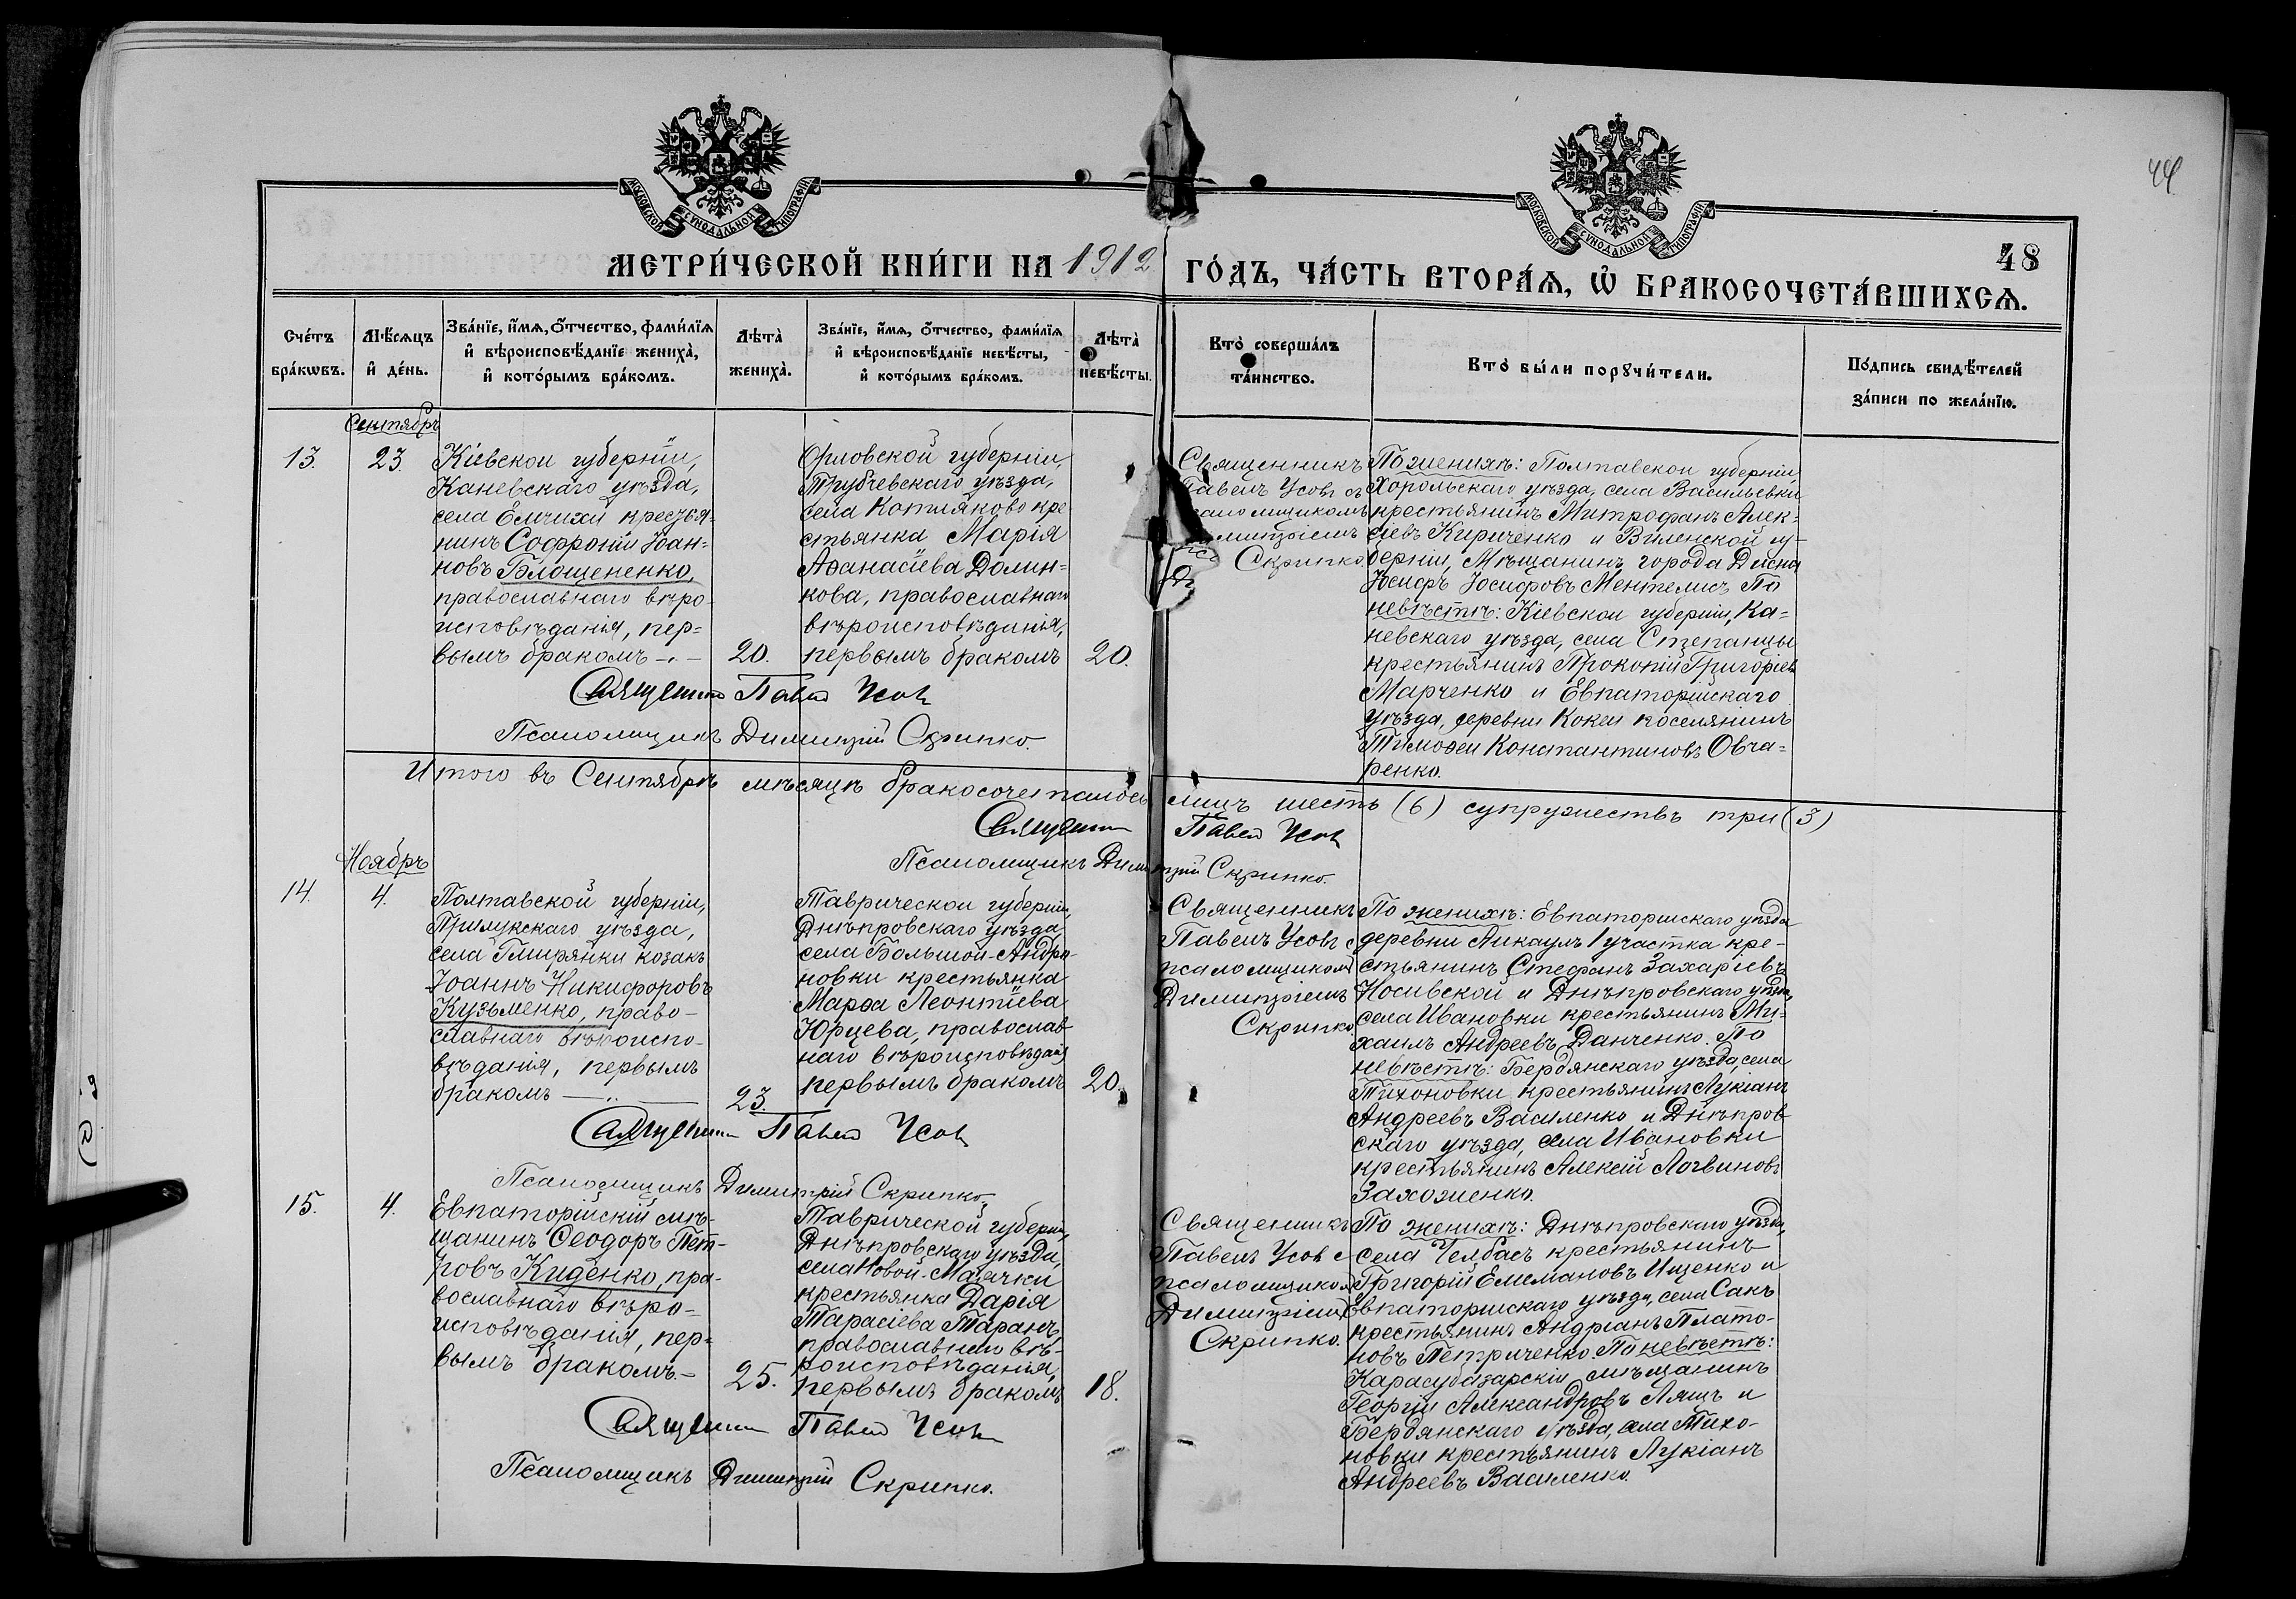 44
МОСКОВСКОЙ СѴНОДАЛЬНОЙ ТИПОГРАФІИ
МОСКОВСКОЙ СѴНОДАЛЬНОЙ ТИПОГРАФІИ
48
МЕТРИ́ЧЕСКОЙ КНИ́ГИ НА 1912 ГО́ДЪ, ЧА́СТЬ ВТОРА́Ѧ, Ѡ҆ БРАКОСОЧЕТА́ВШИХСѦ.
Сче́тъ
бра́кѡвъ.
Мѣ́сѧцъ
и҆ де́нь.
Зва́нїе, и҆́мѧ, ѻ҆́тчество, фами́лїѧ
и҆ вѣроисповѣ́данїе жениха̀,
и҆ кото́рымъ бра́комъ.
Лѣта̀
жениха̀.
Зва́нїе, и҆́мѧ, ѻ҆́тчество, фами́лїѧ
и҆ вѣроисповѣ́данїе невѣ́сты,
и҆ кото́рымъ бра́комъ.
Лѣта̀
невѣ́сты.
Кто̀ соверша́лъ
та́инство.
Кто̀ бы́ли порꙋчи́тели.
По́дпись свидѣ́телей
за́писи по жела́нїю.
Сентябрь
13.
23.
Кіевской губерніи,
Каневскаго уѣзда,
села Емчихи крестья-
нинъ Софроній Іоан-
новъ Блощененко,
православнаго вѣро-
исповѣданія, пер-
вымъ бракомъ
20.
Орловской губерніи,
Трубчевскаго уѣзда,
села Котляково кре
стьянка Марія
Аѳанасіева Долин-
кова, православнаго
вѣроисповѣданія,
первымъ бракомъ
20.
Священникъ
Павелъ Усовъ съ
Скрипко
По женихѣ: Полтавской губерніи,
Хорольскаго уѣзда, села Васильевки
крестьянинъ Митрофанъ Алек-
сіевъ Кириченко и Виленской гу-
берніи, мѣщанинъ города Дисна
Іосифъ Іосифовъ Ментелисъ По
невѣстѣ: Кіевской губерніи, Ка-
невскаго уѣзда, села Степанцы
крестьянинъ Прокопій Григоріевъ
Марченко и Евпаторійскаго
уѣзда, деревни Кокеи поселянинъ
Тимоѳей Константиновъ Овча-
ренко.
Священникъ Павелъ Усовъ
Псаломщикъ Димитрій Скрипко.
Итого въ Сентябрѣ мѣсяцѣ бракосочеталось лицъ шесть (6) супружествъ три (3)
Священникъ Павелъ Усовъ
Псаломщикъ Димитрій Скрипко.
Ноябрь
14.
4.
Полтавской губерніи,
Прилукскаго уѣзда,
села Гмирянки козакъ
Іоаннъ Никифоровъ
Кузьменко, право-
славнаго вѣроиспо-
вѣданія, первымъ
бракомъ
23.
Таврической губерніи,
Днѣпровскаго уѣзда,
села Большой-Андро-
новки крестьянка
Марѳа Леонтіева
Юрцева, православ
наго вѣроисповѣданія
первымъ бракомъ
20.
Священникъ
Павелъ Усовъ с
псаломщикомъ
Димитріемъ
Скрипко
По женихѣ: Евпаторійскаго уѣзда
деревни Аикаулъ 1 участка кре-
стьянинъ Стефанъ Захаріевъ
Носивской и Днѣпровскаго уѣзда,
села Ивановки крестьянинъ Ми-
хаилъ Андреевъ Данченко. По
невѣстѣ: Бердянскаго уѣзда, села
Тихоновки крестьянинъ Лукіанъ
Андреевъ Василенко и Днѣпров
скаго уѣзда, села Ивановки
крестьянинъ Алексій Логвиновъ
Захоженко.
Священникъ Павелъ Усовъ
Псаломщикъ Димитрій Скрипко.
15.
4.
Евпаторійскій мѣ-
щанинъ Ѳеодоръ Пет-
ровъ Киденко, пра-
вославнаго вѣро-
исповѣданія, пер-
вымъ бракомъ.-
25.
Таврической губерніи,
Днѣпровскаго уѣзда,
села Новой-Маячки
крестьянка Дарія
Тарасіева Таранъ,
православнаго вѣ-
роисповѣданія,
первымъ бракомъ
18.
Священникъ
Павелъ Усовъ с
псаломщикомъ
Димитріемъ
Скрипко.
По женихѣ: Днѣпровскаго уѣзда,
села Челбасъ крестьянинъ
Григорій Емеліановъ Ищенко и
Евпаторійскаго уѣзда, села Сакъ
крестьянинъ Андріанъ Плато-
новъ Петриченко. По невѣстѣ:
Карасубазарскій мѣщанинъ
Георгій Александровъ Лящъ и
Бердянскаго уѣзда, села Тихо-
новки крестьянинъ Лукіанъ
Андреевъ Василенко.
Священникъ Павелъ Усовъ
Псаломщикъ Димитрій Скрипко.